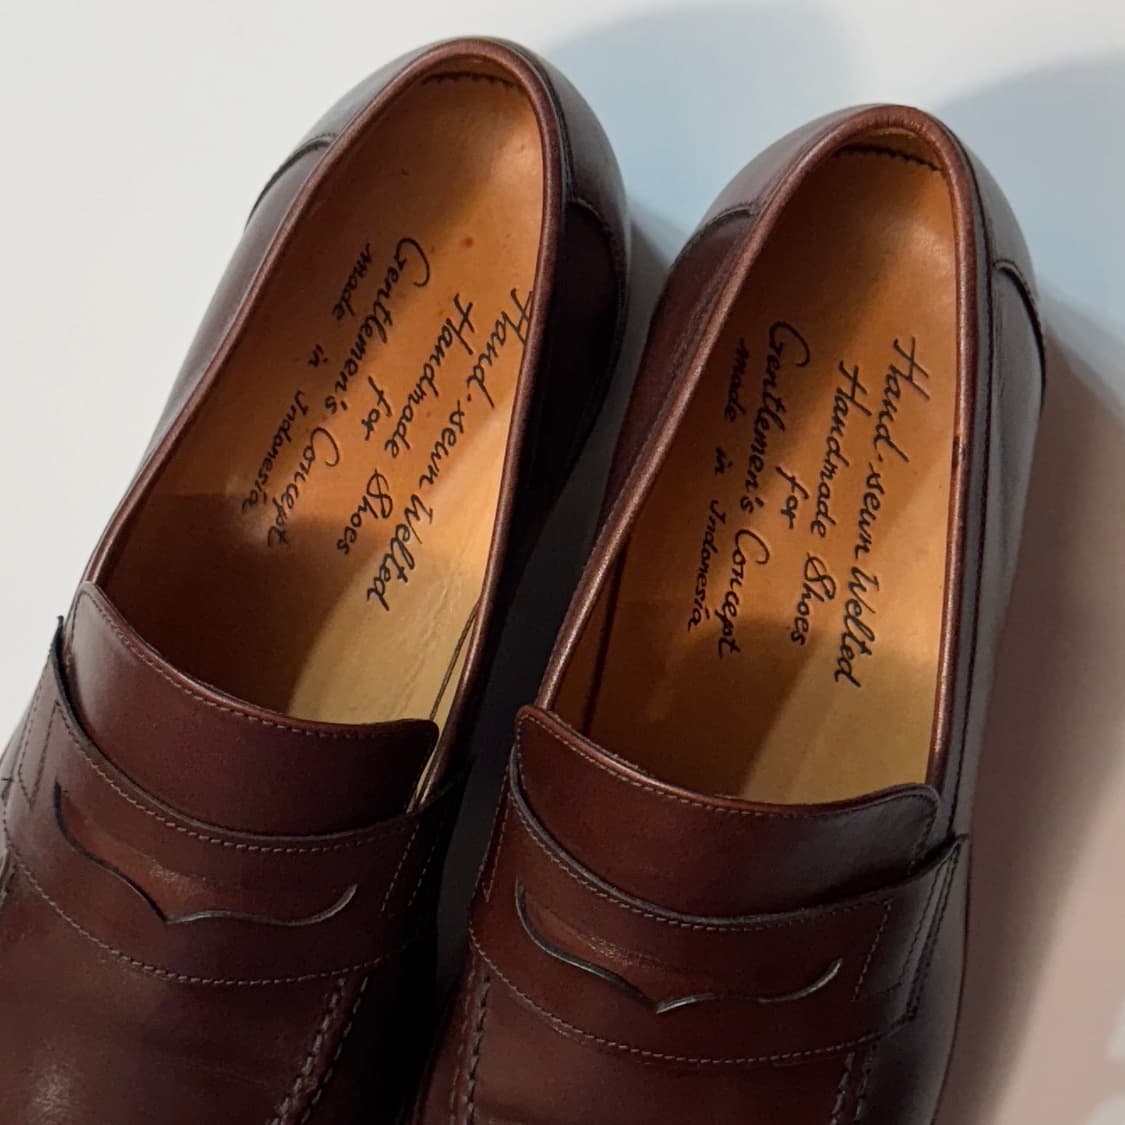 Hand-sewn Welted
Handmade Shoes
for
Gentlemen's Concept
made in Indonesia
Hand-sewn Welted
Handmade Shoes
for
Gentlemen's Concept
made in Indonesia